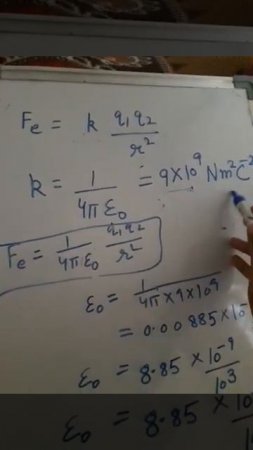 Fe = k q1q2/r²
k = 1/4πε0 = 9×10⁹ Nm²C⁻²
Fe = 1/4πε0 q1q2/r²
ε0 = 1/4π×9×10⁹
= 0.00885×10⁻
ε0 = 8.85 × 10⁻⁹/10³
ε0 = 8.85 × 10